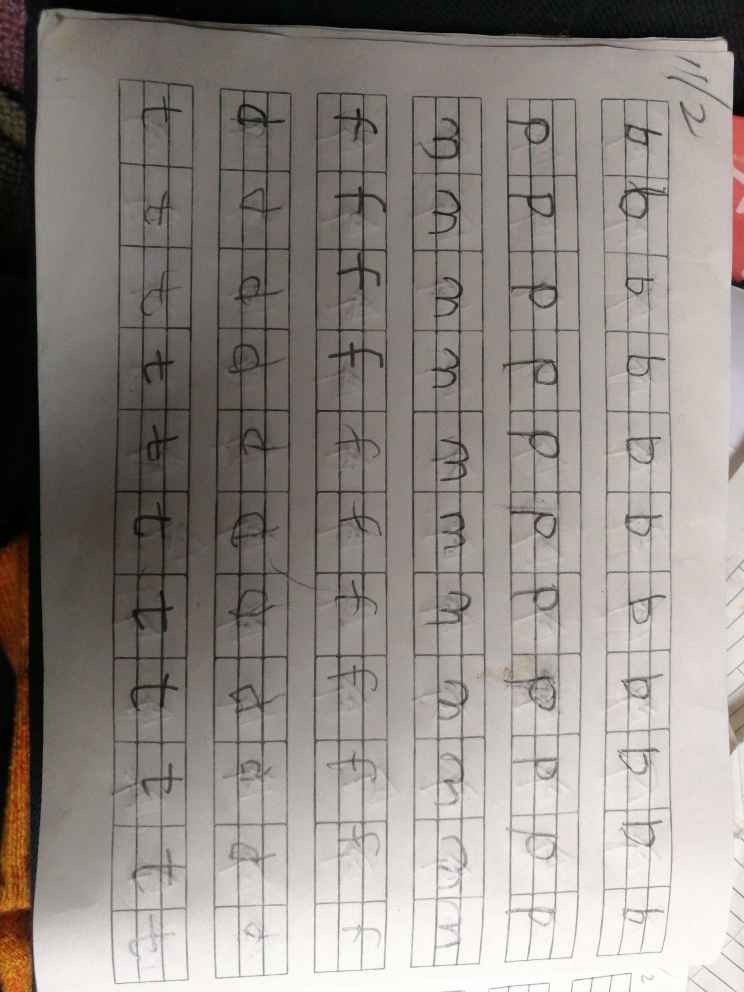 11/2
b b b b b b b b b b b
p p p p p p p p p p p
m m m m m m m m m m m
f f f f f f f f f f f
d d d d d d d d d d d
t t t t t t t t t t t